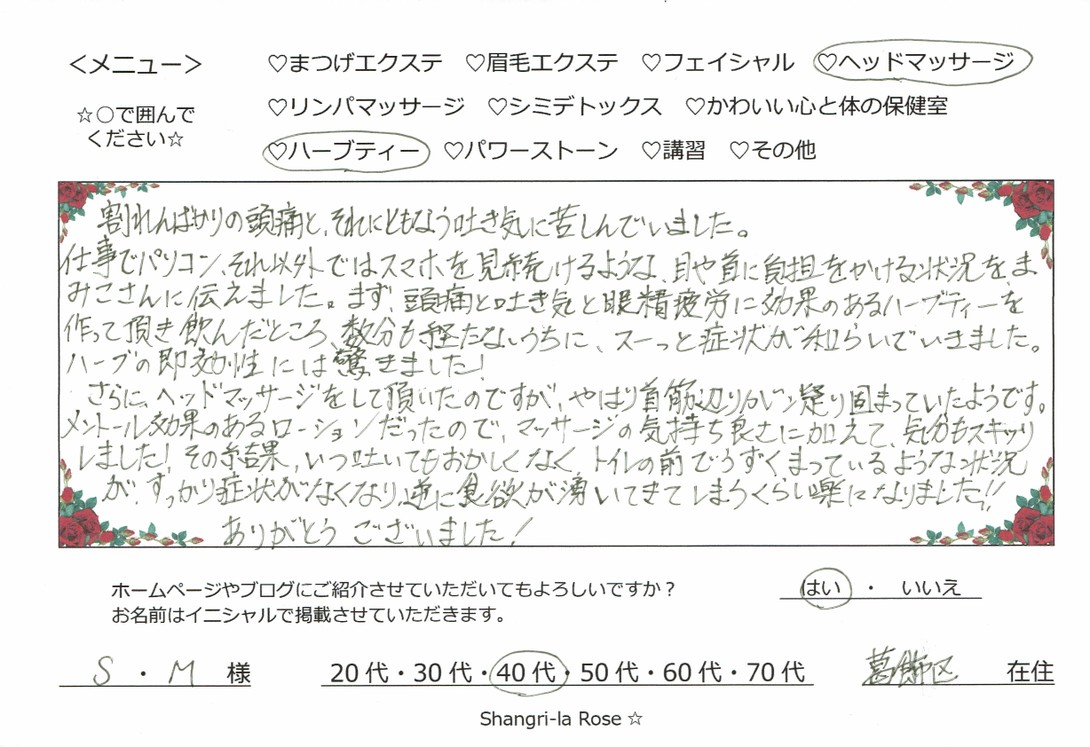 ＜メニュー＞ ♡まつげエクステ ♡眉毛エクステ ♡フェイシャル ♡ヘッドマッサージ
☆○で囲んで
ください☆
♡リンパマッサージ ♡シミデトックス ♡かわいい心と体の保健室
♡ハーブティー ♡パワーストーン ♡講習 ♡その他
割れんばかりの頭痛と、それにともなう吐き気に苦しんでいました。
仕事でパソコン、それ以外ではスマホを見続けるような、目や首に負担をかける状況をま
みこさんに伝えました。まず、頭痛と吐き気と眼精疲労に効果のあるハーブティーを
作って頂き飲んだところ、数分も経たないうちに、スーっと症状が和らいでいきました。
ハーブの即効性には驚きました！
さらに、ヘッドマッサージをして頂いたのですが、やはり首筋辺りがガン凝り固まっていたようです。
メントール効果のあるローションだったので、マッサージの気持ち良さに加えて、気分もスキッリ
しました！その結果、いつ吐いてもおかしくなく、トイレの前でうずくまっているような状況
が、すっかり症状がなくなり、逆に食欲が湧いてきてしまうくらい楽になりました!!
ありがとうございました！
ホームページやブログにご紹介させていただいてもよろしいですか？ はい ・ いいえ
お名前はイニシャルで掲載させていただきます。
S ・ M 様 20代・30代・40代・50代・60代・70代 葛飾区 在住
Shangri-la Rose ☆